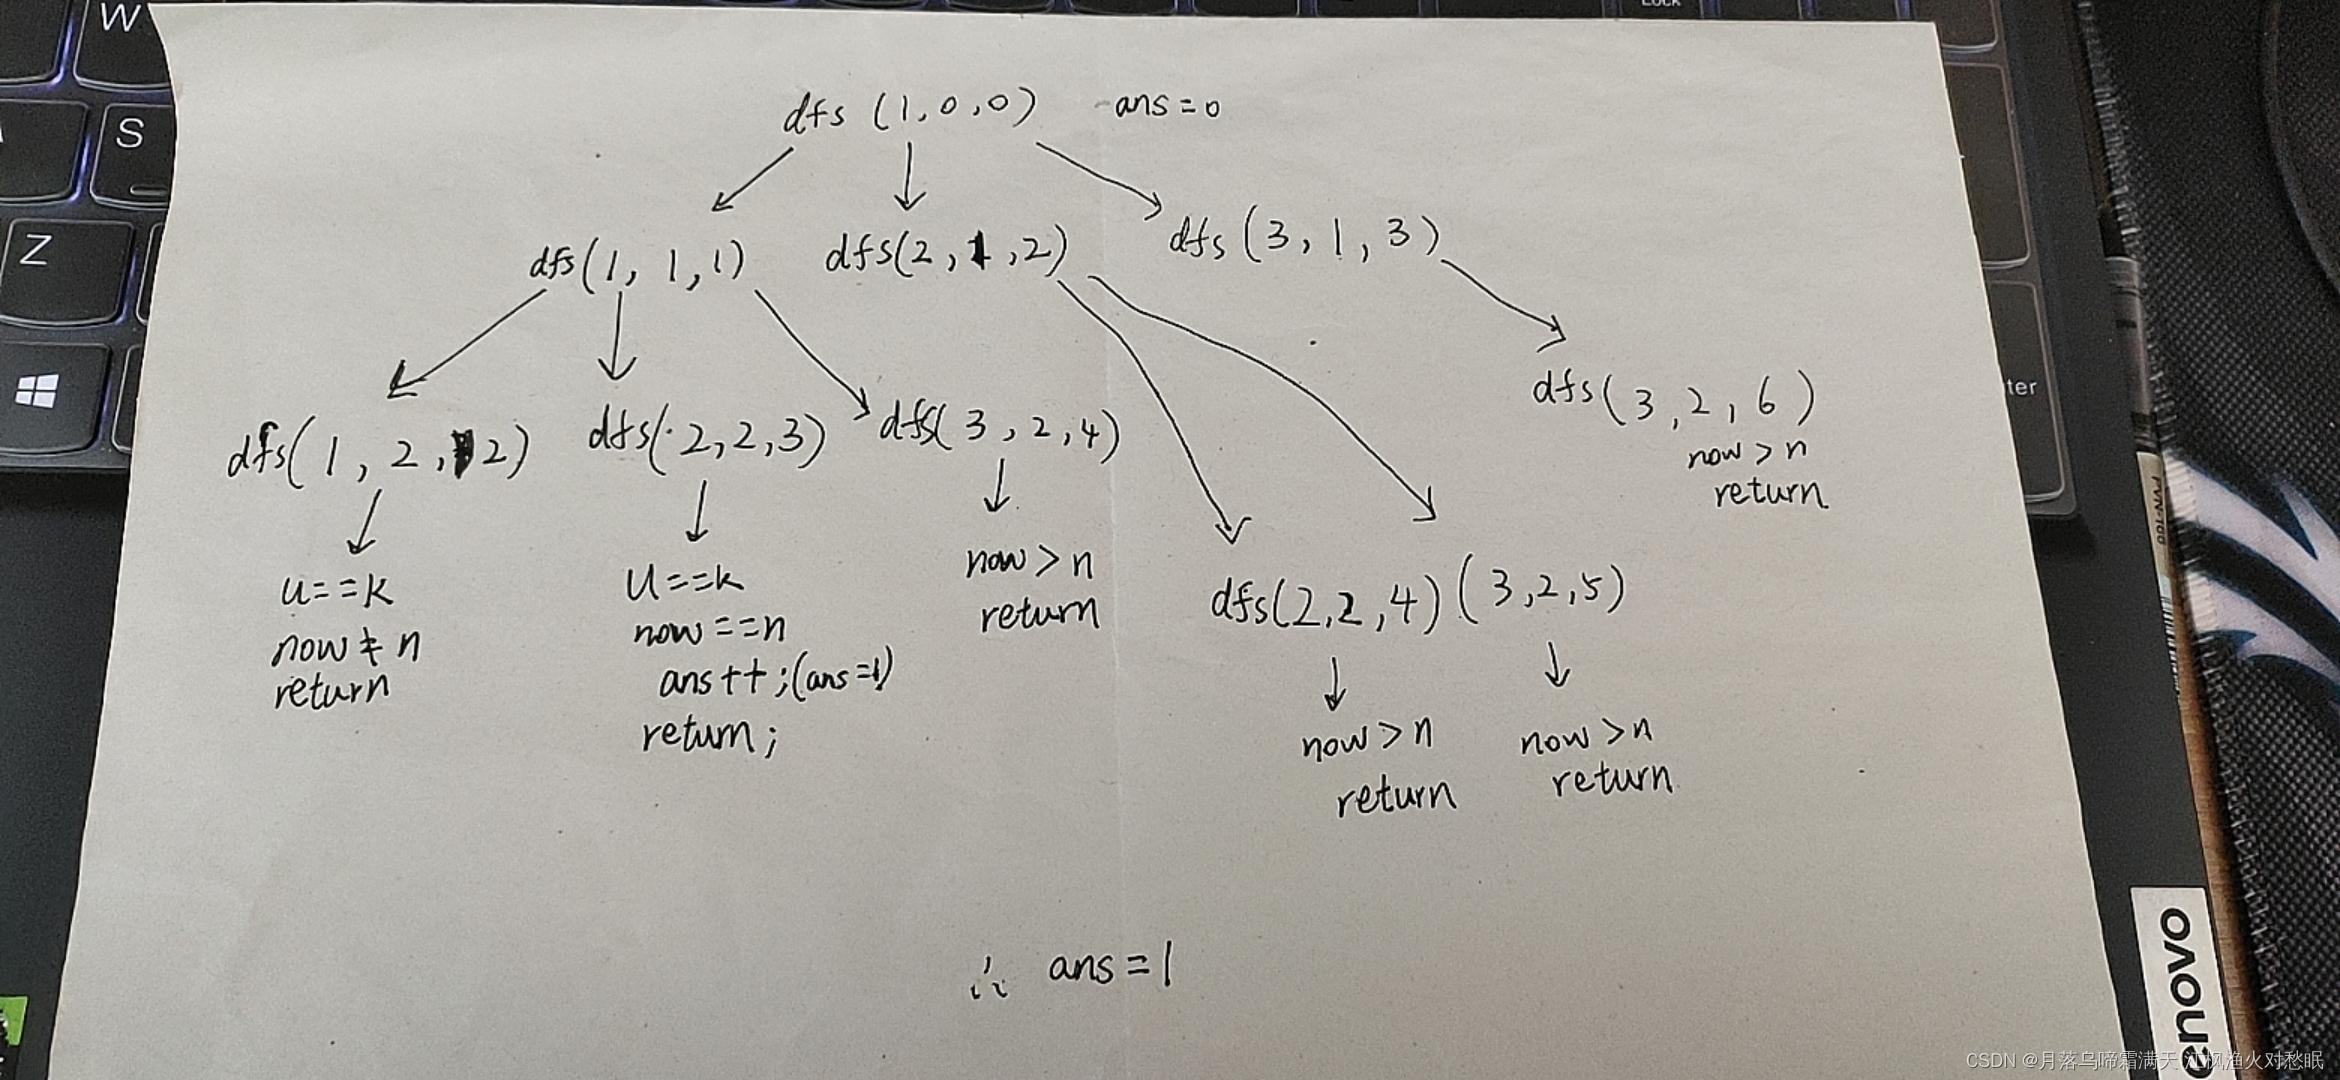 W
Lock
S
Z
dfs (1,0,0) ans=0
dfs(1, 1, 1) dfs(2, 1, 2) dfs(3, 1, 3)
dfs(1, 2, 2) dfs(2,2,3) dfs(3,2,4) dfs(3,2,6)
now > n
return
u==k
now ≠ n
return
u==k
now==n
ans++;(ans=1)
return;
now > n
return
dfs(2,2,4) (3,2,5)
now > n
return
now > n
return
∴ ans=1
ter
enovo
CSDN @月落乌啼霜满天 江枫渔火对愁眠